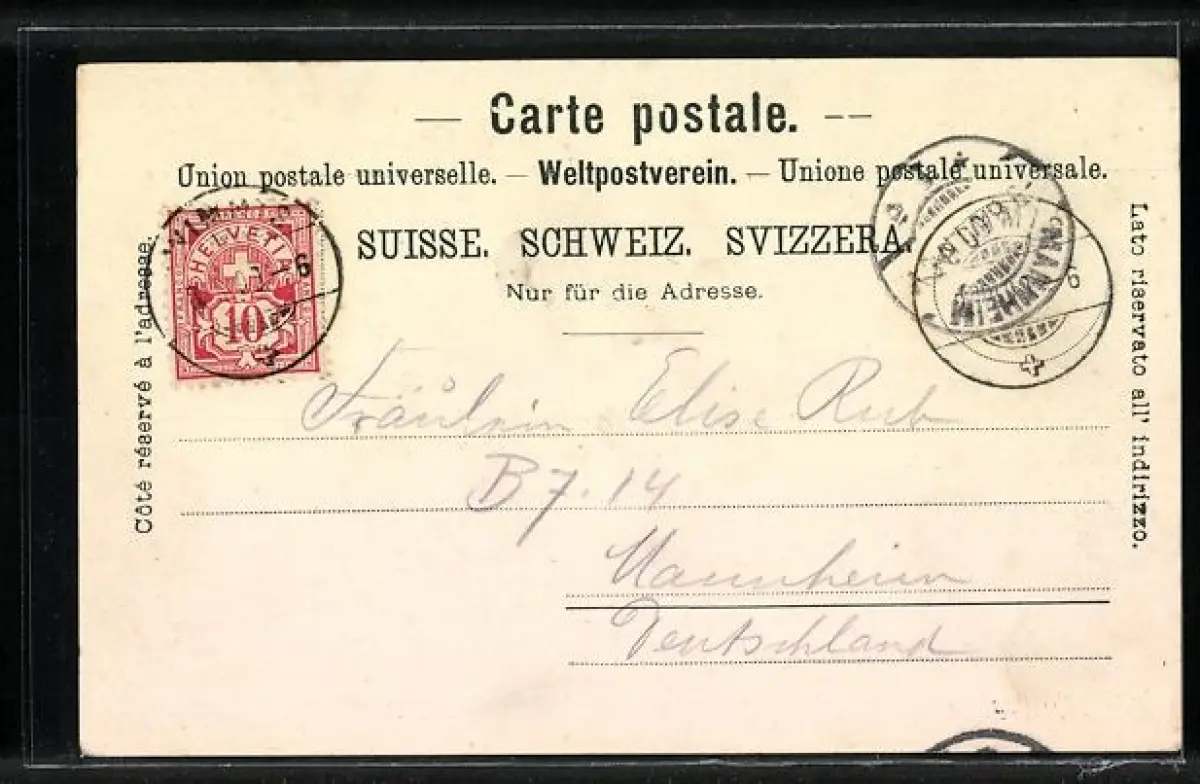 — Carte postale. —
Union postale universelle. — Weltpostverein. — Unione postale universale.
SUISSE. SCHWEIZ. SVIZZERA.
Nur für die Adresse.
Côté réservé à l'adresse.
Lato riservato all' indirizzo.
HELVETIA
10
6
MANNHEIM
6
Fräulein Elise Rub
B 7. 14
Mannheim
Deutschland